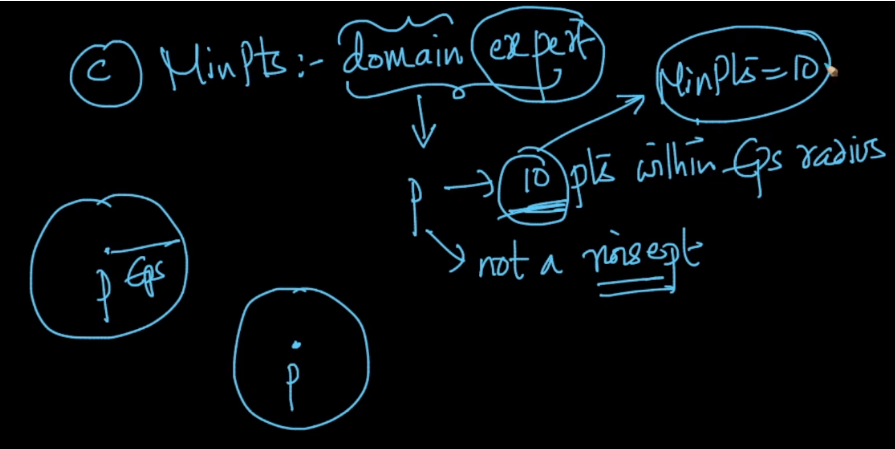 c MinPts:- domain expert
MinPts = 10
p → 10 pts within Eps radius
→ not a noise pt
p Eps
p